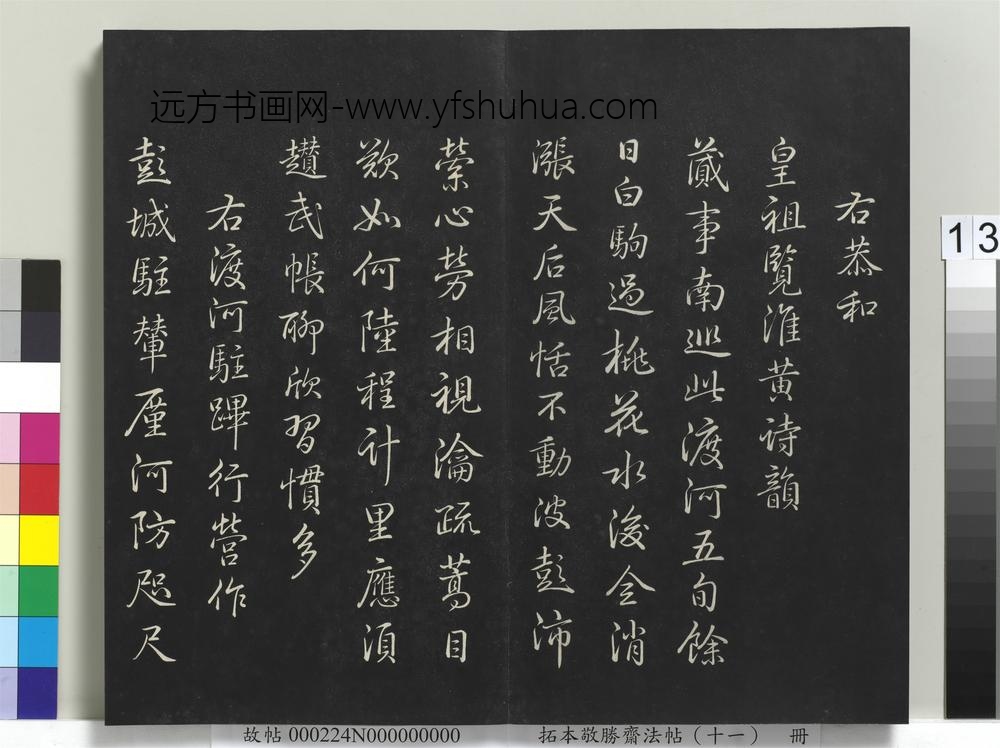 远方书画网-www.yfshuhua.com
右恭和
皇祖覽淮黃詩韻
蕆事南巡此渡河五旬餘
日白駒過桃花水後全消
漲天后風恬不動波彭沛
縈心勞相視瀹疏蒿目
歎如何陸程計里應須
趲武帳聊欣習慣多
右渡河駐蹕行營作
彭城駐輦廑河防咫尺
13
故帖 000224N000000000 拓本敬勝齋法帖（十一） 冊